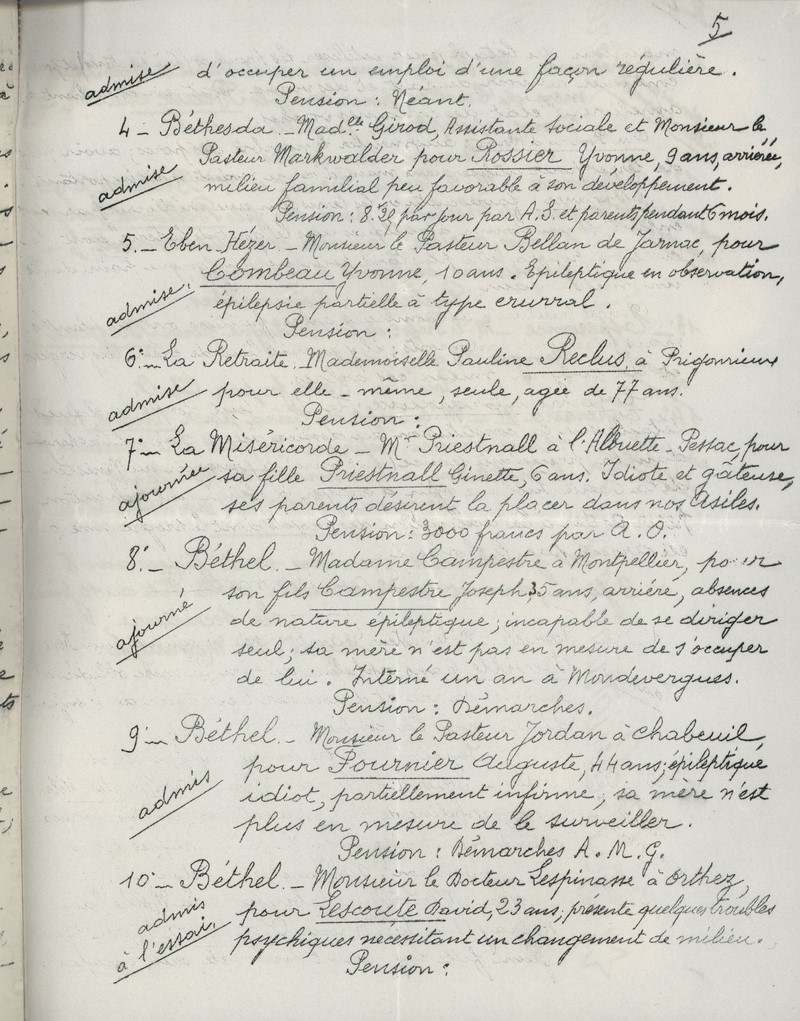 5
admise d'occuper un emploi d'une façon régulière.
Pension : Néant.
4 - Béthesda. - Mad^elle Girod, Assistante Sociale et Monsieur le
admise Pasteur Markwalder pour Rossier Yvonne, 9 ans, arriérée,
milieu familial peu favorable à son développement.
Pension : 8.  par jour par A.S. et parents, pendant 6 mois.
5. - Eben-Hézer. - Monsieur le Pasteur Bellan de Jarnac, pour
Combeau Yvonne, 10 ans. Epileptique en observation,
admise, épilepsie partielle à type crurral.
Pension :
6° - La Retraite. Mademoiselle Pauline Reclus, à Prigonrieux
admise pour elle-même, seule, agée de 77 ans.
Pension :
7° - La Miséricorde - M^r Priestnall à l'Alouette-Pessac, pour
ajournée sa fille Priestnall Ginette, 6 ans. Idiote et gâteuse,
ses parents désirent la placer dans nos Asiles.
Pension : 3000 francs par A.O.
8° - Béthel. - Madame Campestre à Montpellier, pour
son fils Campestre Joseph, 35 ans, arriéré, absences
ajourné de nature épileptique ; incapable de se diriger
seul ; sa mère n'est pas en mesure de s'occuper
de lui. Interné un an à Mondevergues.
Pension : Démarches.
9° - Béthel. - Monsieur le Pasteur Jordan à Chabeuil,
pour Fournier Auguste, 44 ans ; épileptique
admis idiot, partiellement infirme, sa mère n'est
plus en mesure de le surveiller.
Pension : Démarches A.M.G.
10° - Béthel. - Monsieur le Docteur Lespinasse à Orthez,
admis pour Lescoute David, 23 ans, présente quelques troubles
à l'essai, psychiques nécessitant un changement de milieu.
Pension :